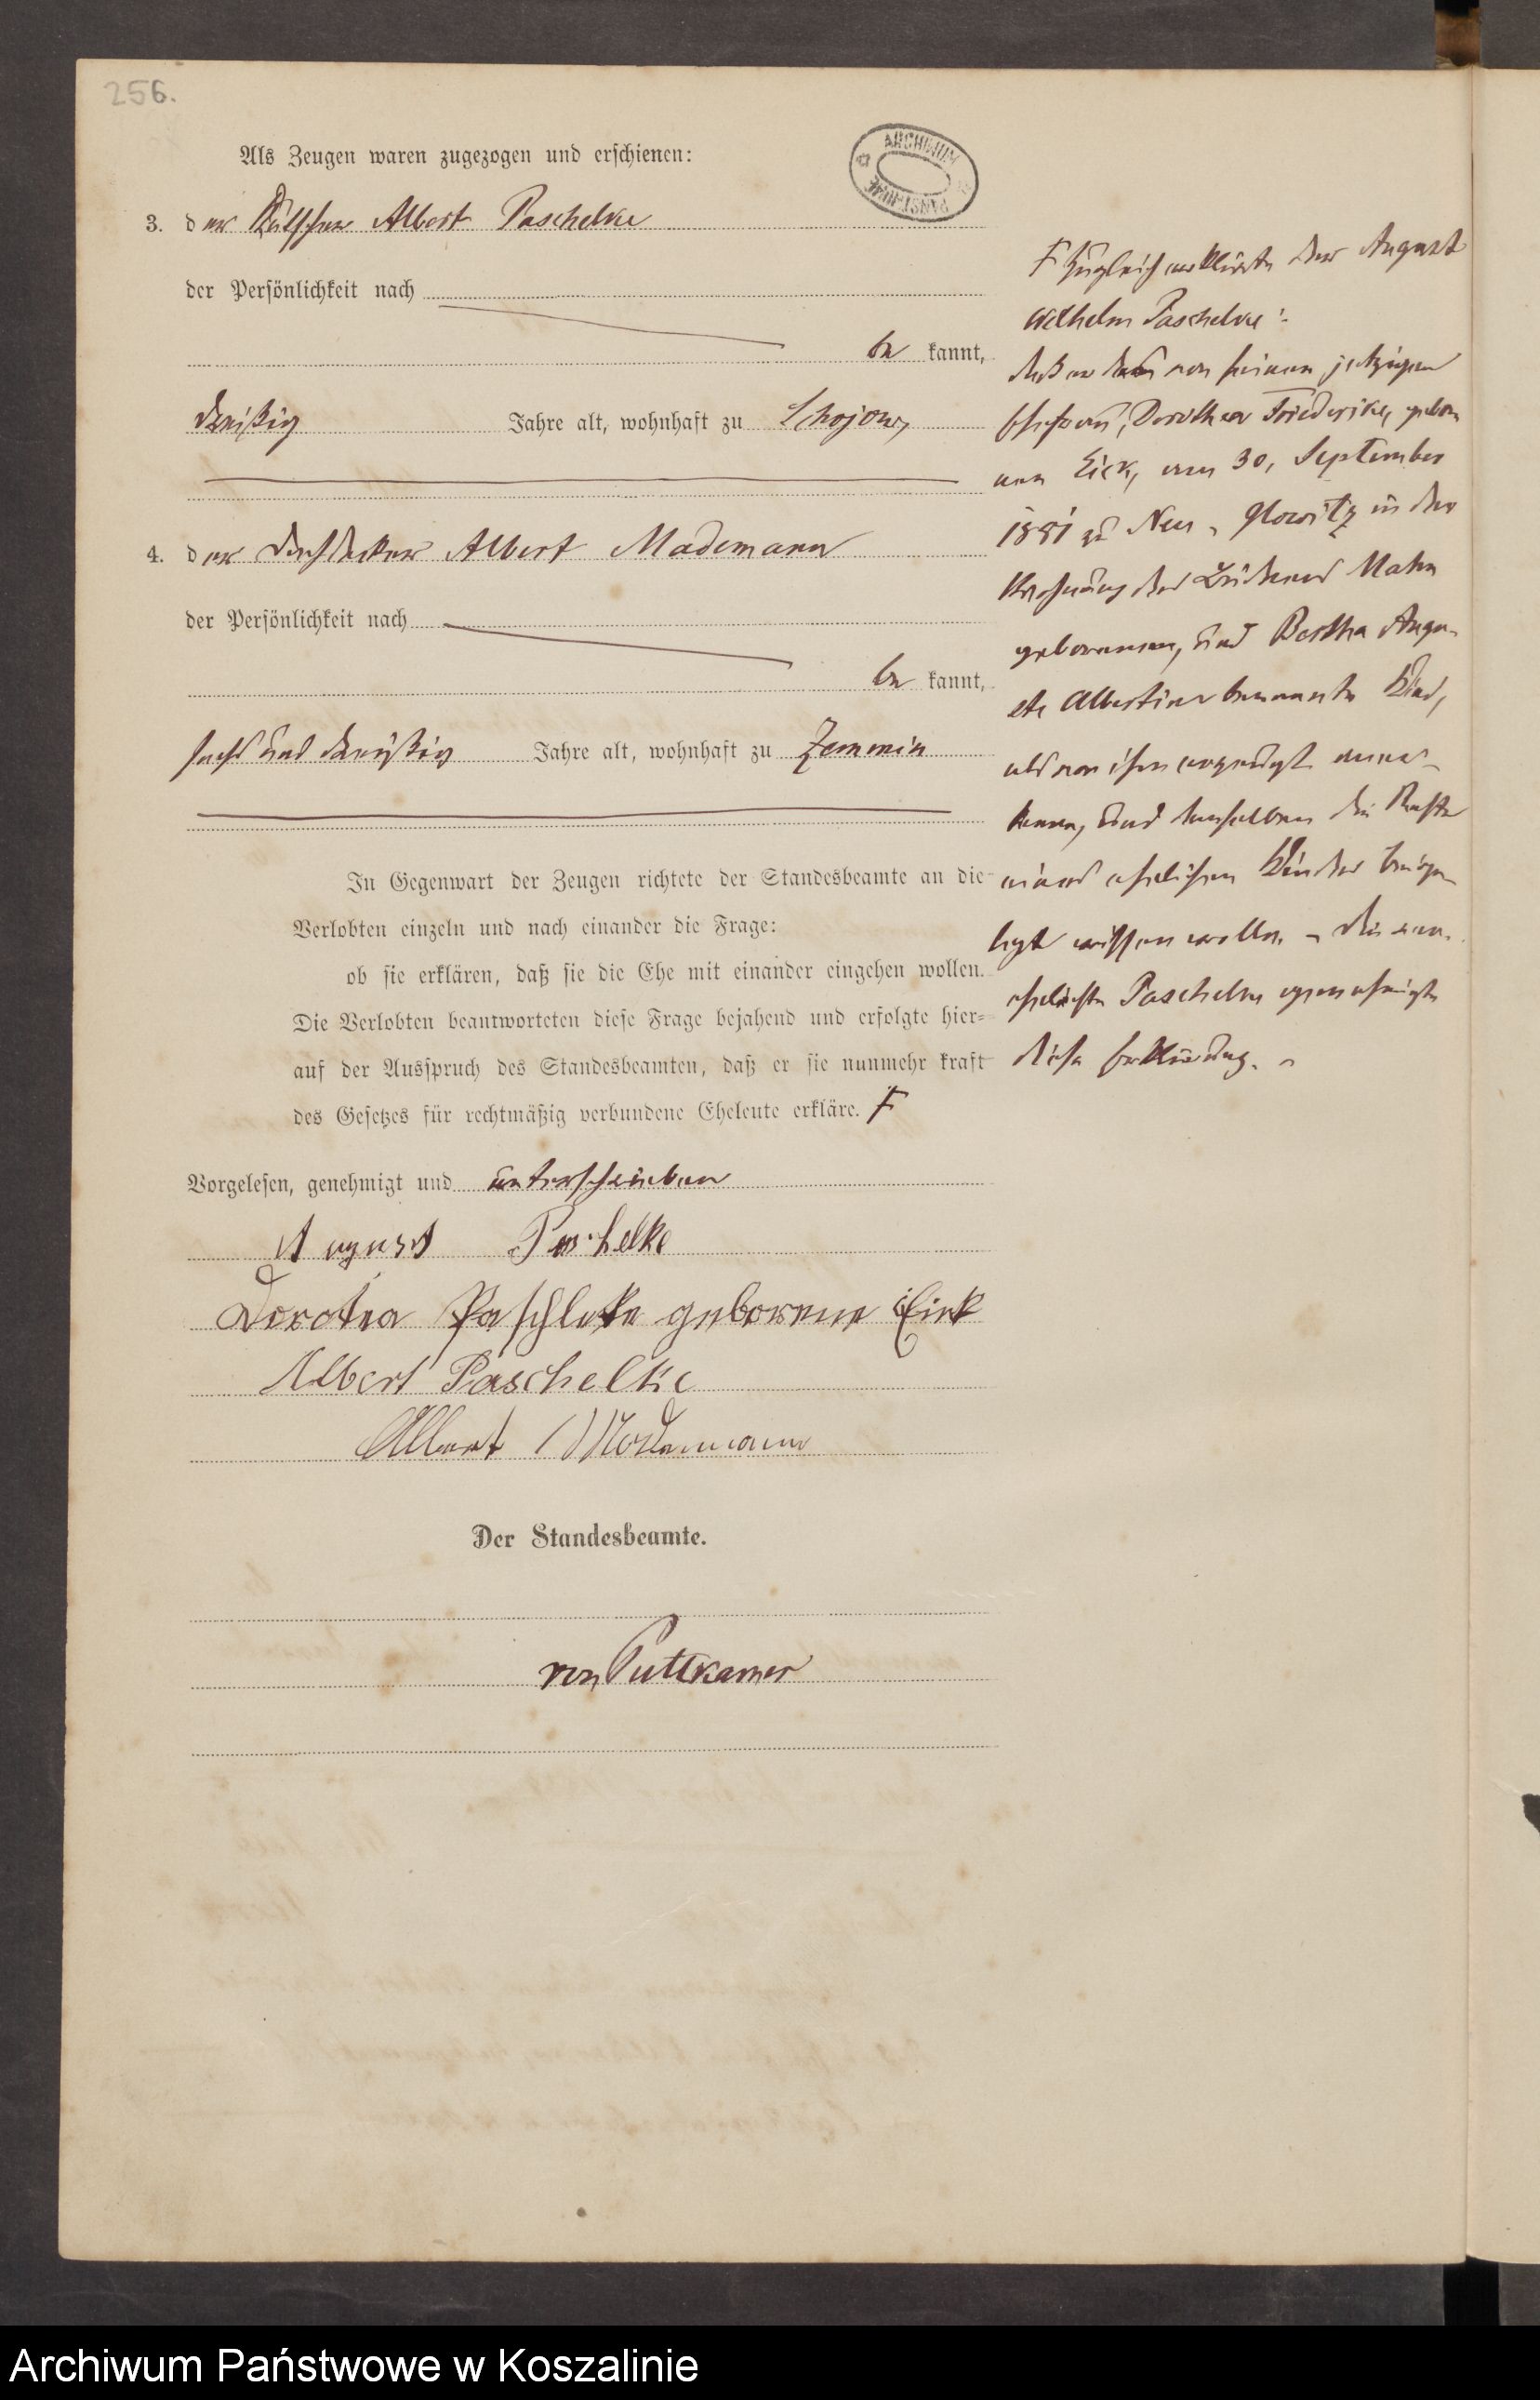 256.
ARCHIWUM PAŃSTWOWE
Als Zeugen waren zugezogen und erschienen:
3. der Albert Paschelke
der Persönlichkeit nach
be kannt,
dreißig Jahre alt, wohnhaft zu Schojow,
4. der Dachdecker Albert Mademann
der Persönlichkeit nach
be kannt,
sechs und dreißig Jahre alt, wohnhaft zu Zemmin
In Gegenwart der Zeugen richtete der Standesbeamte an die
Verlobten einzeln und nach einander die Frage:
ob sie erklären, daß sie die Ehe mit einander eingehen wollen.
Die Verlobten beantworteten diese Frage bejahend und erfolgte hier=
auf der Ausspruch des Standesbeamten, daß er sie nunmehr kraft
des Gesetzes für rechtmäßig verbundene Eheleute erkläre. F
Vorgelesen, genehmigt und unterschrieben
August Paschelke
Dorotea Paschleke geborene Eick
Albert Paschelke
Albert Mademann
Der Standesbeamte.
von Puttkamer
F Zugleich erklärte der August
Wilhelm Paschelke:
daß er das von seiner jetzigen
Ehefrau, Dorothea Friederike, gebor
nen Eick, am 30. September
1881 zu Neu-Glowitz in der
Wohnung des Büdners Mahn
geborenen, und Bertha Augu-
ste Albertine benannte Kind,
als von ihm erzeugt aner-
kenne, und demselben die Rechte
eines ehelichen Kindes beige-
legt wissen wolle. - Die ver-
ehelichte Paschelke genehmigte
diese Erklärung. -
Archiwum Państwowe w Koszalinie